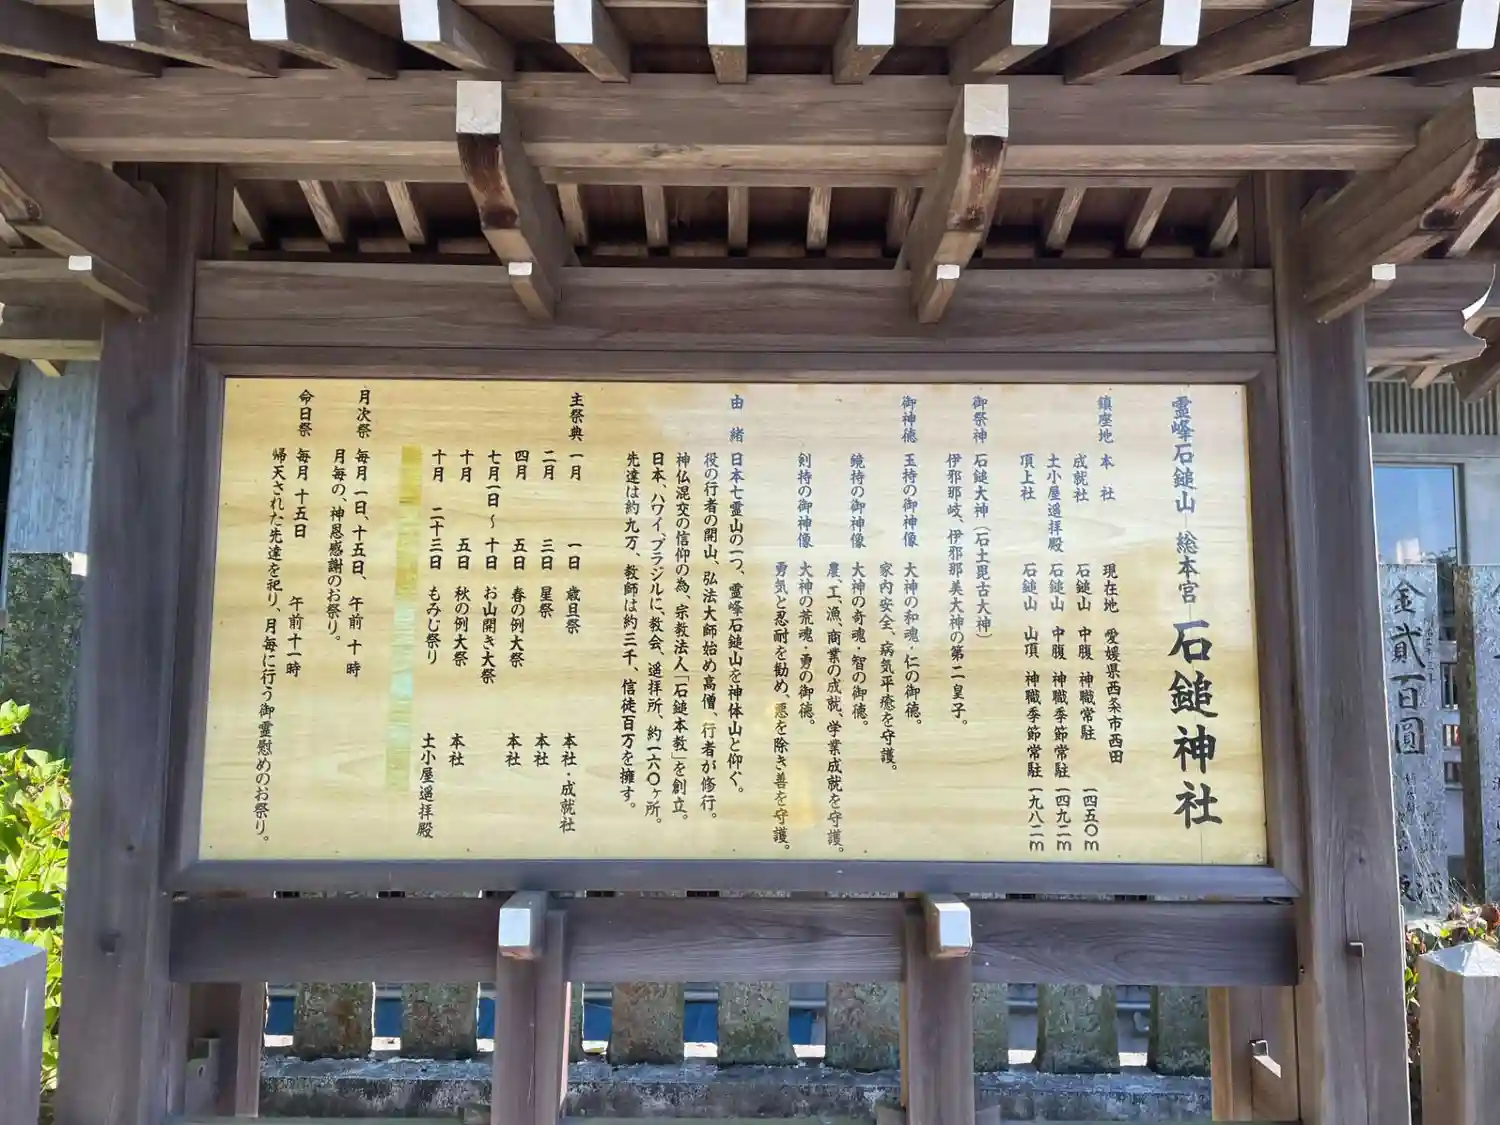 霊峰石鎚山 総本宮 石鎚神社
鎮座地 本社 現在地 愛媛県西条市西田
成就社 石鎚山 中腹 神職常駐 一四五〇m
土小屋遥拝殿 石鎚山 中腹 神職季節常駐 一四九二m
頂上社 石鎚山 山頂 神職季節常駐 一九八二m
御祭神 石鎚大神(石土毘古大神)
伊邪那岐、伊邪那美大神の第二皇子。
御神徳 玉持の御神像 大神の和魂・仁の御徳。
家内安全、病気平癒を守護。
鏡持の御神像 大神の奇魂・智の御徳。
農、工、漁、商業の成就、学業成就を守護。
剣持の御神像 大神の荒魂・勇の御徳。
勇気と忍耐を勧め、悪を除き善を守護。
由緒 日本七霊山の一つ、霊峰石鎚山を神体山と仰ぐ。
役の行者の開山、弘法大師始め高僧、行者が修行。
神仏混交の信仰の為、宗教法人「石鎚本教」を創立。
日本、ハワイ、ブラジルに、教会、遥拝所、約一六〇ヶ所。
先達は約九万、教師は約三千、信徒百万を擁す。
主祭典 一月 一日 歳旦祭 本社・成就社
二月 三日 星祭 本社
四月 五日 春の例大祭 本社
七月一日〜十日 お山開き大祭
十月 五日 秋の例大祭 本社
十月 二十三日 もみじ祭り 土小屋遥拝殿
月次祭 毎月 一日、十五日、午前 十時
月毎の、神恩感謝のお祭り。
命日祭 毎月 十五日 午前十一時
帰天された先達を祀り、月毎に行う御霊慰めのお祭り。
金貳百圓